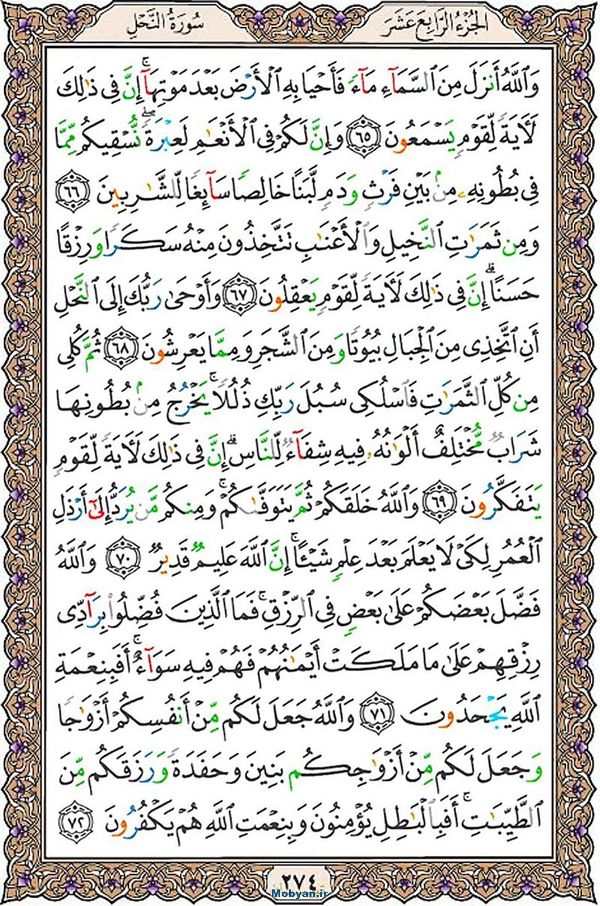 الجُزءُ الرَّابِعَ عَشَرَ
سُورَةُ النَّحْلِ
وَاللَّهُ أَنزَلَ مِنَ السَّمَآءِ مَآءً فَأَحْيَا بِهِ الْأَرْضَ بَعْدَ مَوْتِهَآ ۚ إِنَّ فِى ذَٰلِكَ
لَآيَةً لِّقَوْمٍ يَسْمَعُونَ ٦٥ وَإِنَّ لَكُمْ فِى الْأَنْعَٰمِ لَعِبْرَةً ۖ نُّسْقِيكُم مِّمَّا
فِى بُطُونِهِۦ مِنۢ بَيْنِ فَرْثٍ وَدَمٍ لَّبَنًا خَالِصًا سَآئِغًا لِّلشَّٰرِبِينَ ٦٦
وَمِن ثَمَرَٰتِ النَّخِيلِ وَالْأَعْنَٰبِ تَتَّخِذُونَ مِنْهُ سَكَرًا وَرِزْقًا
حَسَنًا ۗ إِنَّ فِى ذَٰلِكَ لَآيَةً لِّقَوْمٍ يَعْقِلُونَ ٦٧ وَأَوْحَىٰ رَبُّكَ إِلَى النَّحْلِ
أَنِ اتَّخِذِى مِنَ الْجِبَالِ بُيُوتًا وَمِنَ الشَّجَرِ وَمِمَّا يَعْرِشُونَ ٦٨ ثُمَّ كُلِى
مِن كُلِّ الثَّمَرَٰتِ فَاسْلُكِى سُبُلَ رَبِّكِ ذُلُلًا ۚ يَخْرُجُ مِنۢ بُطُونِهَا
شَرَابٌ مُّخْتَلِفٌ أَلْوَٰنُهُۥ فِيهِ شِفَآءٌ لِّلنَّاسِ ۗ إِنَّ فِى ذَٰلِكَ لَآيَةً لِّقَوْمٍ
يَتَفَكَّرُونَ ٦٩ وَاللَّهُ خَلَقَكُمْ ثُمَّ يَتَوَفَّىٰكُمْ ۚ وَمِنكُم مَّن يُرَدُّ إِلَىٰٓ أَرْذَلِ
الْعُمُرِ لِكَىْ لَا يَعْلَمَ بَعْدَ عِلْمٍ شَيْـًٔا ۚ إِنَّ اللَّهَ عَلِيمٌ قَدِيرٌ ٧٠ وَاللَّهُ
فَضَّلَ بَعْضَكُمْ عَلَىٰ بَعْضٍ فِى الرِّزْقِ ۚ فَمَا الَّذِينَ فُضِّلُوا۟ بِرَآدِّى
رِزْقِهِمْ عَلَىٰ مَا مَلَكَتْ أَيْمَٰنُهُمْ فَهُمْ فِيهِ سَوَآءٌ ۚ أَفَبِنِعْمَةِ
اللَّهِ يَجْحَدُونَ ٧١ وَاللَّهُ جَعَلَ لَكُم مِّنْ أَنفُسِكُمْ أَزْوَٰجًا
وَجَعَلَ لَكُم مِّنْ أَزْوَٰجِكُم بَنِينَ وَحَفَدَةً وَرَزَقَكُم مِّنَ
الطَّيِّبَٰتِ ۚ أَفَبِالْبَٰطِلِ يُؤْمِنُونَ وَبِنِعْمَتِ اللَّهِ هُمْ يَكْفُرُونَ ٧٢
٢٧٤
Mobyan.ir